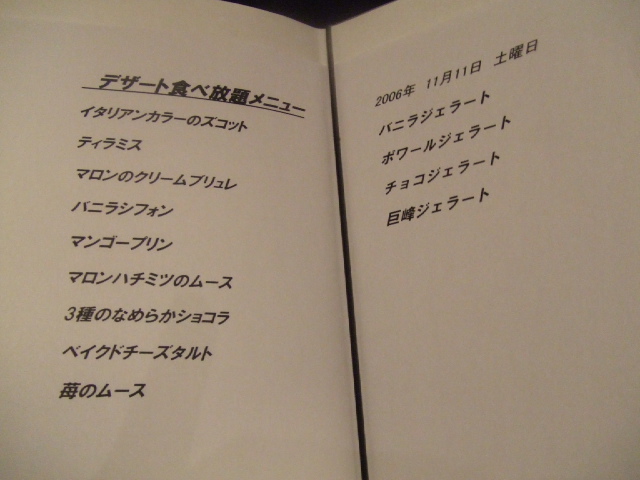 デザート食べ放題メニュー
イタリアンカラーのズコット
ティラミス
マロンのクリームブリュレ
バニラシフォン
マンゴープリン
マロンハチミツのムース
3種のなめらかショコラ
ベイクドチーズタルト
苺のムース
2006年 11月11日 土曜日
バニラジェラート
ポワールジェラート
チョコジェラート
巨峰ジェラート